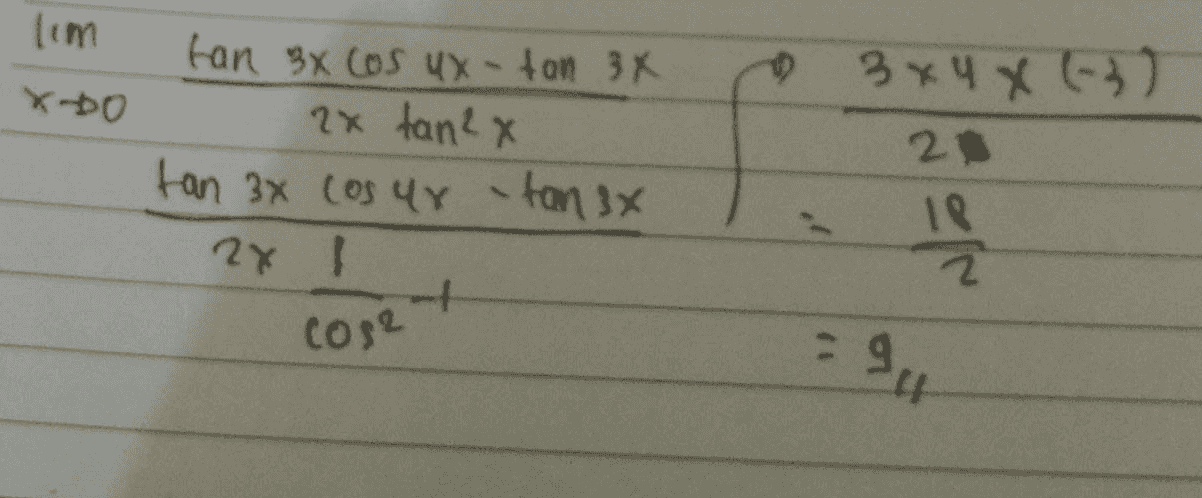 lim tan 3x cos 4x - tan 3x
x→0 2x tan² x
tan 3x cos 4x - tan 3x
2x 1
cos² -1
⇒ 3 x 4 x (-3)
2
= 18
2
= 9,,